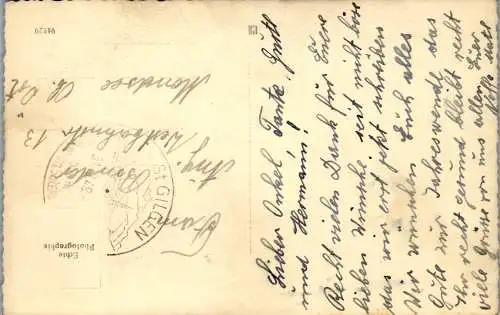 Lieber Onkel, Tante, Gretl
und Hermann!
Recht vielen Dank für Eure
lieben Wünsche seit nicht böse
das wir erst jetzt schreiben
Wir wünschen Euch alles
Gute zur Jahreswende das
Ihr recht gesund bleibt recht
viele Grüsse von uns allen Eure
Fam.
Ing.
Mondsee
13
ST. GILGEN
Echte
Photographie